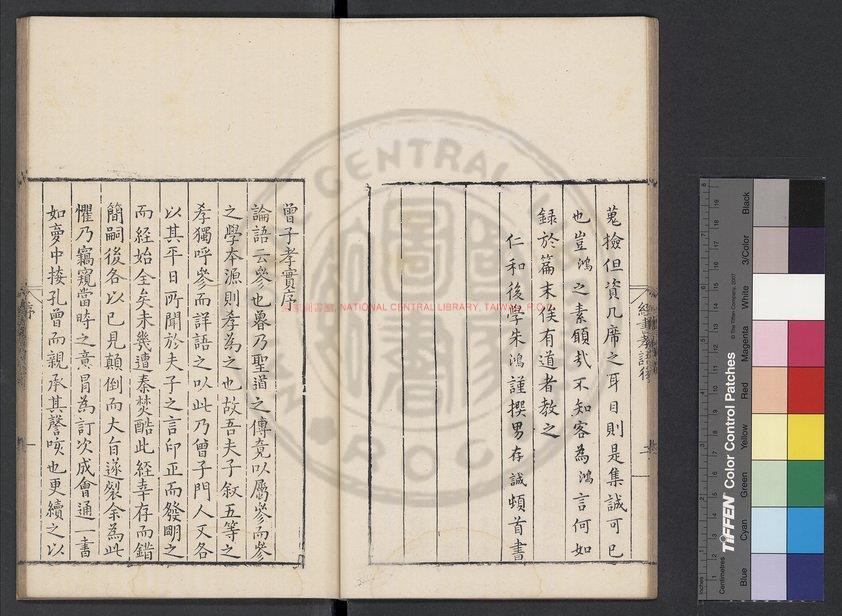 蒐撿但資几席之耳目則是集誠可已
也豈鴻之素願㢤不知客為鴻言何如
錄於篇末俟有道者教之
仁和後學朱鴻謹撰男存誠頓首書
曾子孝實序
論語云參也魯乃聖道之傳竟以屬參而參
之學本源則孝為之也故吾夫子叙五等之
孝獨呼參而詳語之以此乃曾子門人又各
以其平日所聞於夫子之言印正而發明之
而經始全矣未幾遭秦焚酷此經幸存而錯
簡嗣後各以已見顛倒而大旨遂裂余為此
懼乃竊窺當時之意冒為訂次成會通一書
如夢中接孔曾而親承其謦咳也更續之以
序
一
NATIONAL CENTRAL LIBRARY, TAIWAN, R.O.C.
CENTRAL
圖
TIFFEN Color Control Patches
© The Tiffen Company, 2007
Inches
Centimetres
Blue
Cyan
Green
Yellow
Red
Magenta
White
3/Color
Black